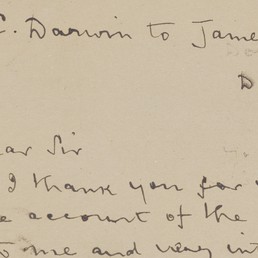 C. Darwin to Jame
D
ear Sir
I thank you for
e account of the
to me and very int